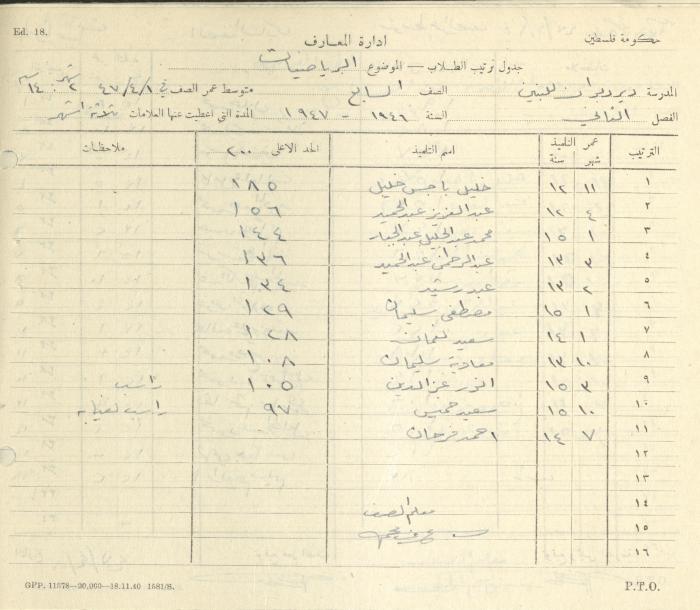 Ed. 18.
حكومة فلسطين
ادارة المعارف
جدول ترتيب الطلاب — الموضوع الرياضيات
المدرسة دير ديوان للبنين الصف السابع متوسط عمر الصف في ٤٧/٤/١ شهر ٢ سنه ١٤
الفصل الثاني السنة ١٩٤٦ - ١٩٤٧ المدة التي اعطيت عنها العلامات ثلاثة اشهر
الترتيب عمر التلميذ شهر سنة اسم التلميذ الحد الاعلى ٢٠٠ ملاحظات
١ ١١ ١٢ خليل ياجس خليل ١٨٥
٢ ٤ ١٢ عبد العزيز عبد الحميد ١٥٦
٣ ١ ١٥ محمد عبد الجليل عبد الجبار ١٤٤
٤ ٣ ١٣ عبد الرحمن عبد الحميد ١٣٦
٥ ٢ ١٣ عبد رشيد ١٣٤
٦ ١ ١٥ مصطفى سليمان ١٢٩
٧ ١ ١٤ سعيد نعمان ١٢٨
٨ ١٠ ١٣ معاوية سليمان ١٠٨
٩ ٣ ١٥ انور عز الدين ١٠٥ راسب
١٠ ١٠ ١٥ سعيد خميس ٩٧ راسب لغيابه
١١ ٧ ١٤ احمد فرحان
١٢
١٣
١٤ معلم الصف
١٥
١٦
GPP. 11578—20,000—18.11.40 1581/S.
P.T.O.